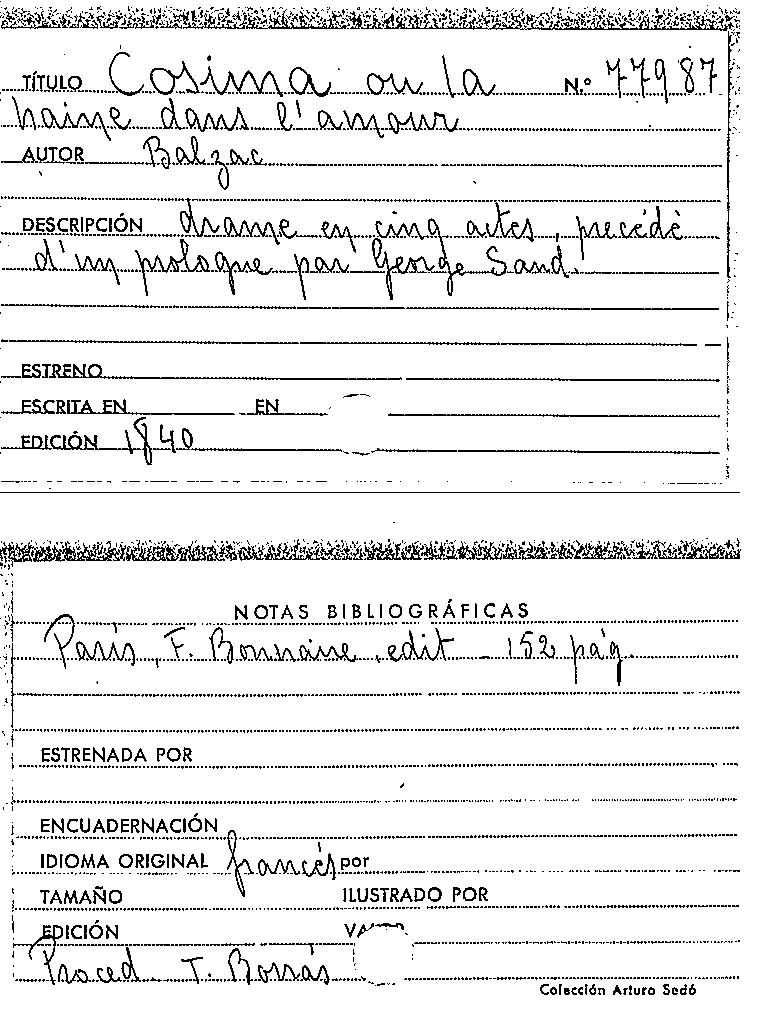 TÍTULO Cosima ou la N.º 77987
haine dans l'amour
AUTOR Balzac
DESCRIPCIÓN drame en cinq actes, precédé
d'un prologue par George Sand.
ESTRENO
ESCRITA EN EN
EDICIÓN 1840
NOTAS BIBLIOGRÁFICAS
París, F. Bonnaire, edit - 152 pág.
ESTRENADA POR
ENCUADERNACIÓN
IDIOMA ORIGINAL francés por
TAMAÑO ILUSTRADO POR
EDICIÓN
Proced. T. Borrás
Colección Arturo Sedó